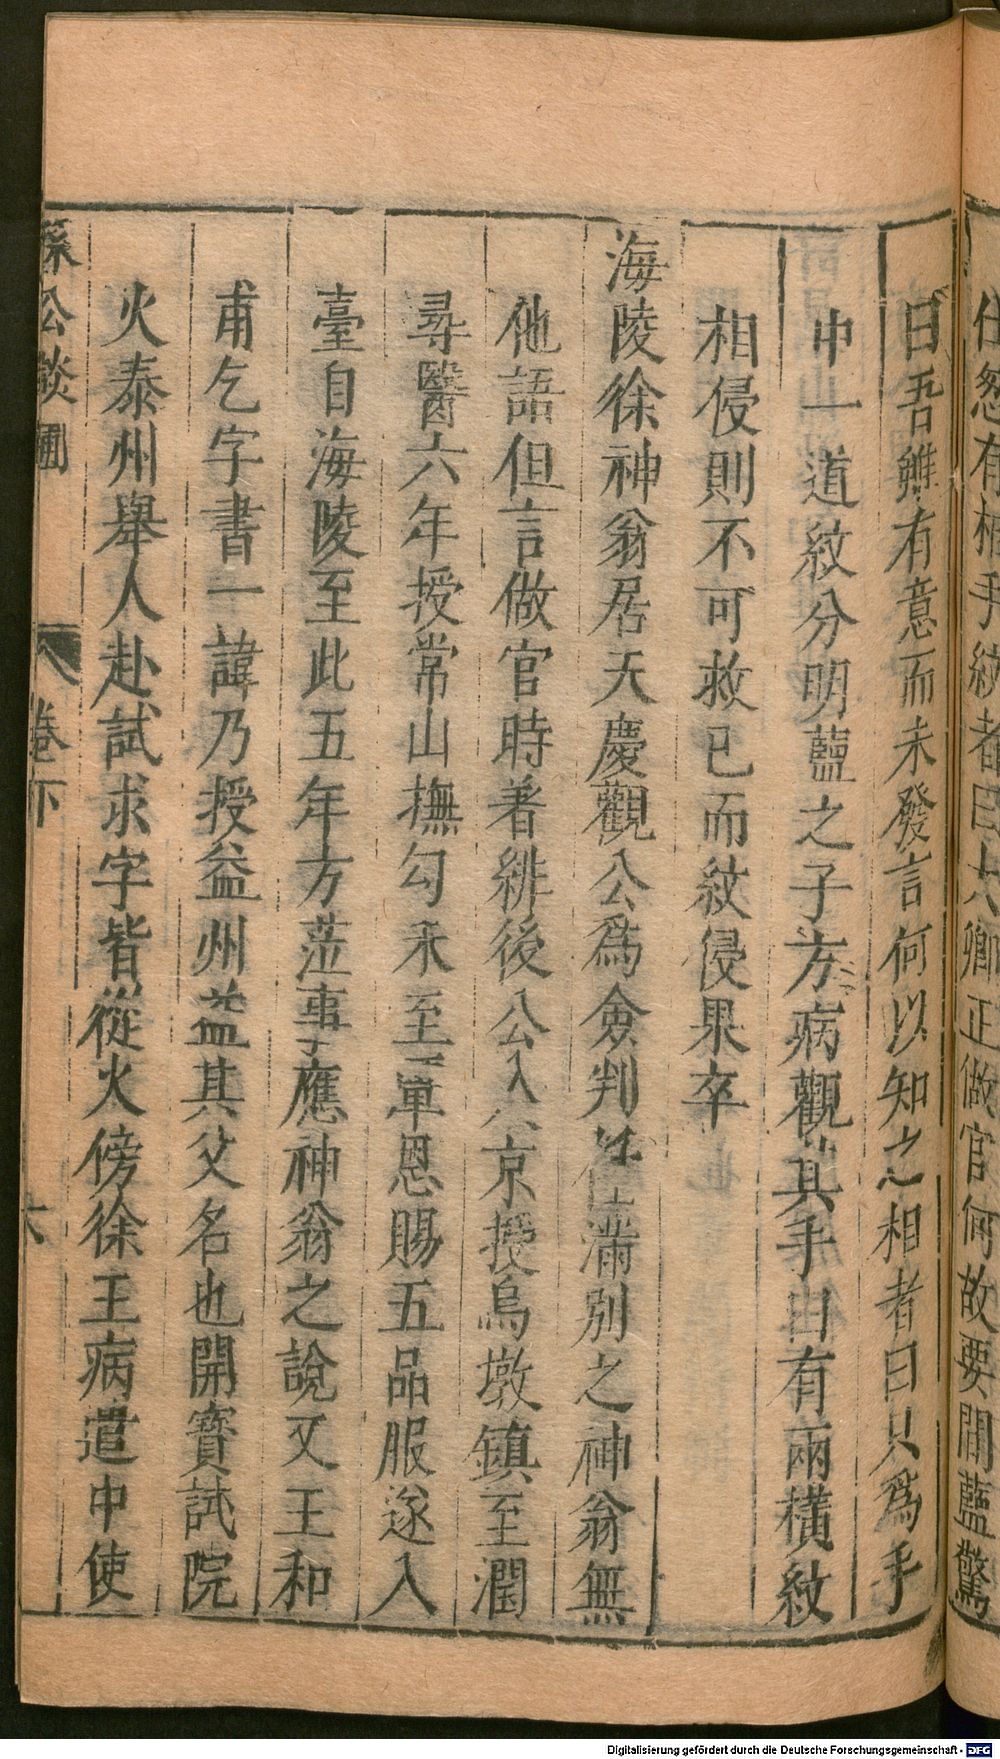 仕忽有相手紋者曰六卿正做官何故要閒藍驚
曰吾雖有意而未發言何以知之相者曰只爲手
中一道紋分明藍之子方病觀其手曰有兩橫紋
相侵則不可救已而紋侵果卒
海陵徐神翁居天慶觀公爲僉判任滿別之神翁無
他語但言做官時著緋後公入京授烏墩鎮至潤
尋醫六年授常山撫勾未至覃恩賜五品服遂入
臺自海陵至此五年方蒞事應神翁之說又王和
甫乞字書一諱乃授益州益其父名也開寶試院
火泰州舉人赴試求字皆從火傍徐王病遣中使
孫公談圃
卷下
六
Digitalisierung gefördert durch die Deutsche Forschungsgemeinschaft - DFG